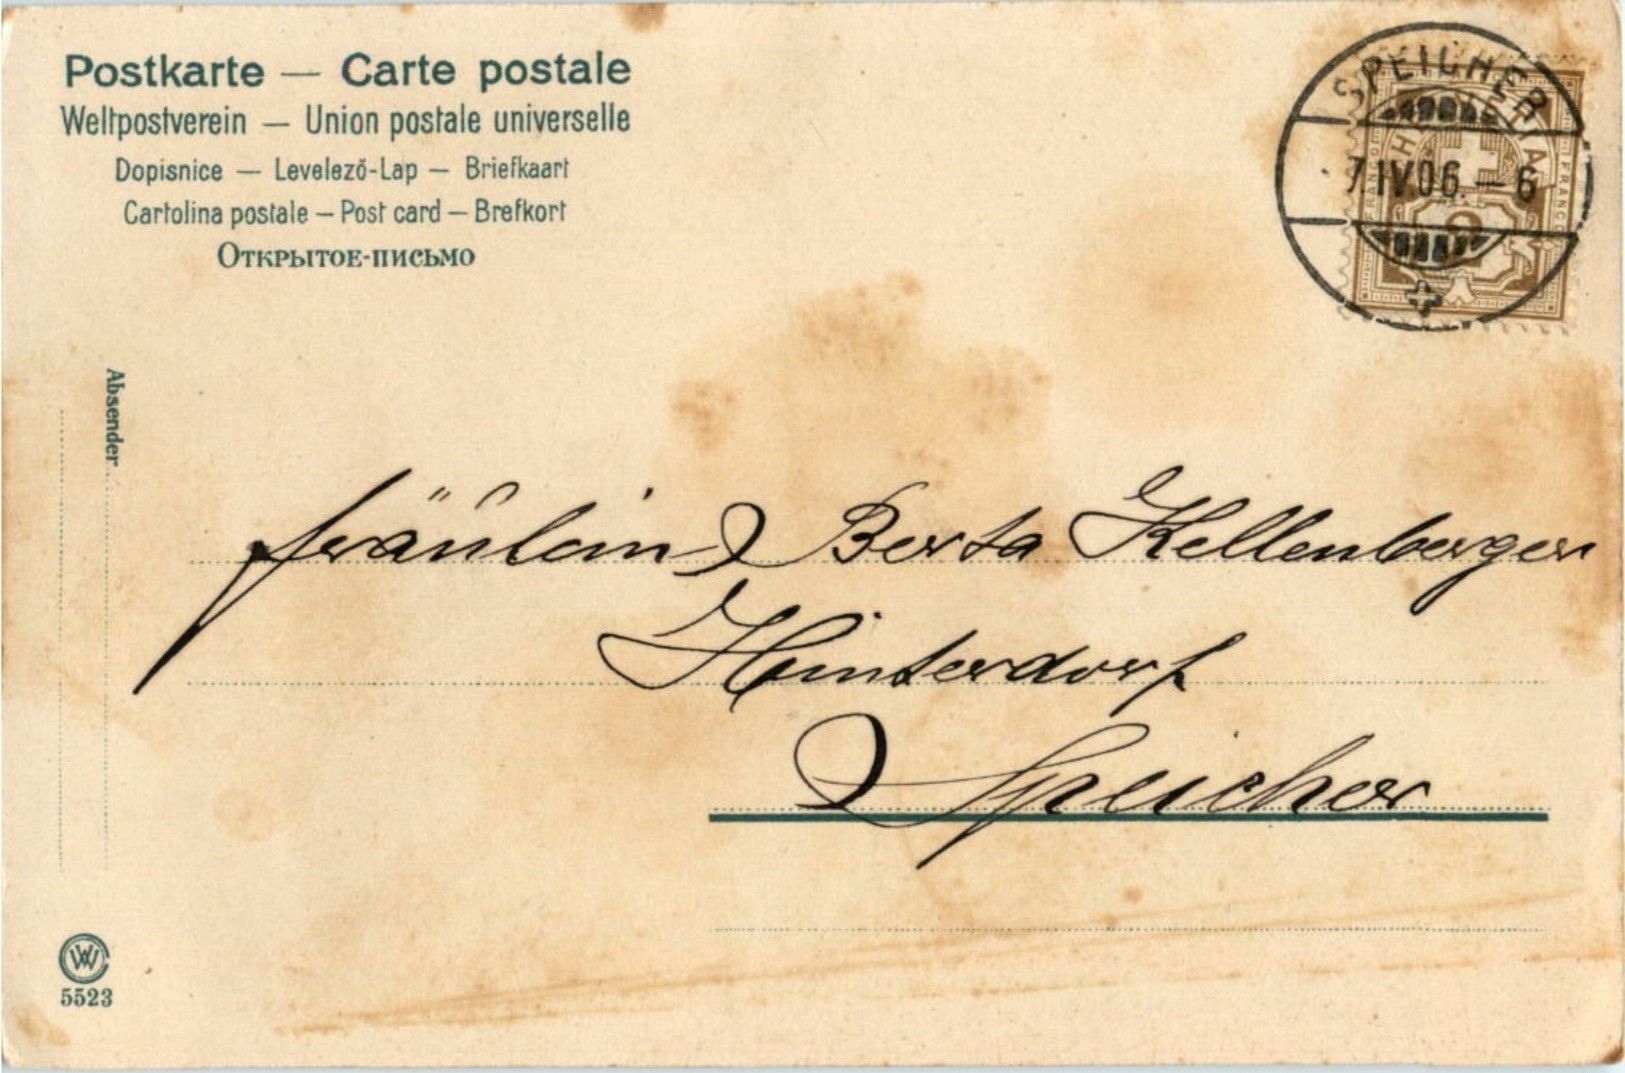 Postkarte — Carte postale
Weltpostverein — Union postale universelle
Dopisnice — Levelező-Lap — Briefkaart
Cartolina postale — Post card — Brefkort
Открытое-письмо
SPEICHER
7.IV.06.–6
FRANCO
FRANCO
Absender
Fräulein Berta Kellenberger
Hinterdorf
Speicher
5523